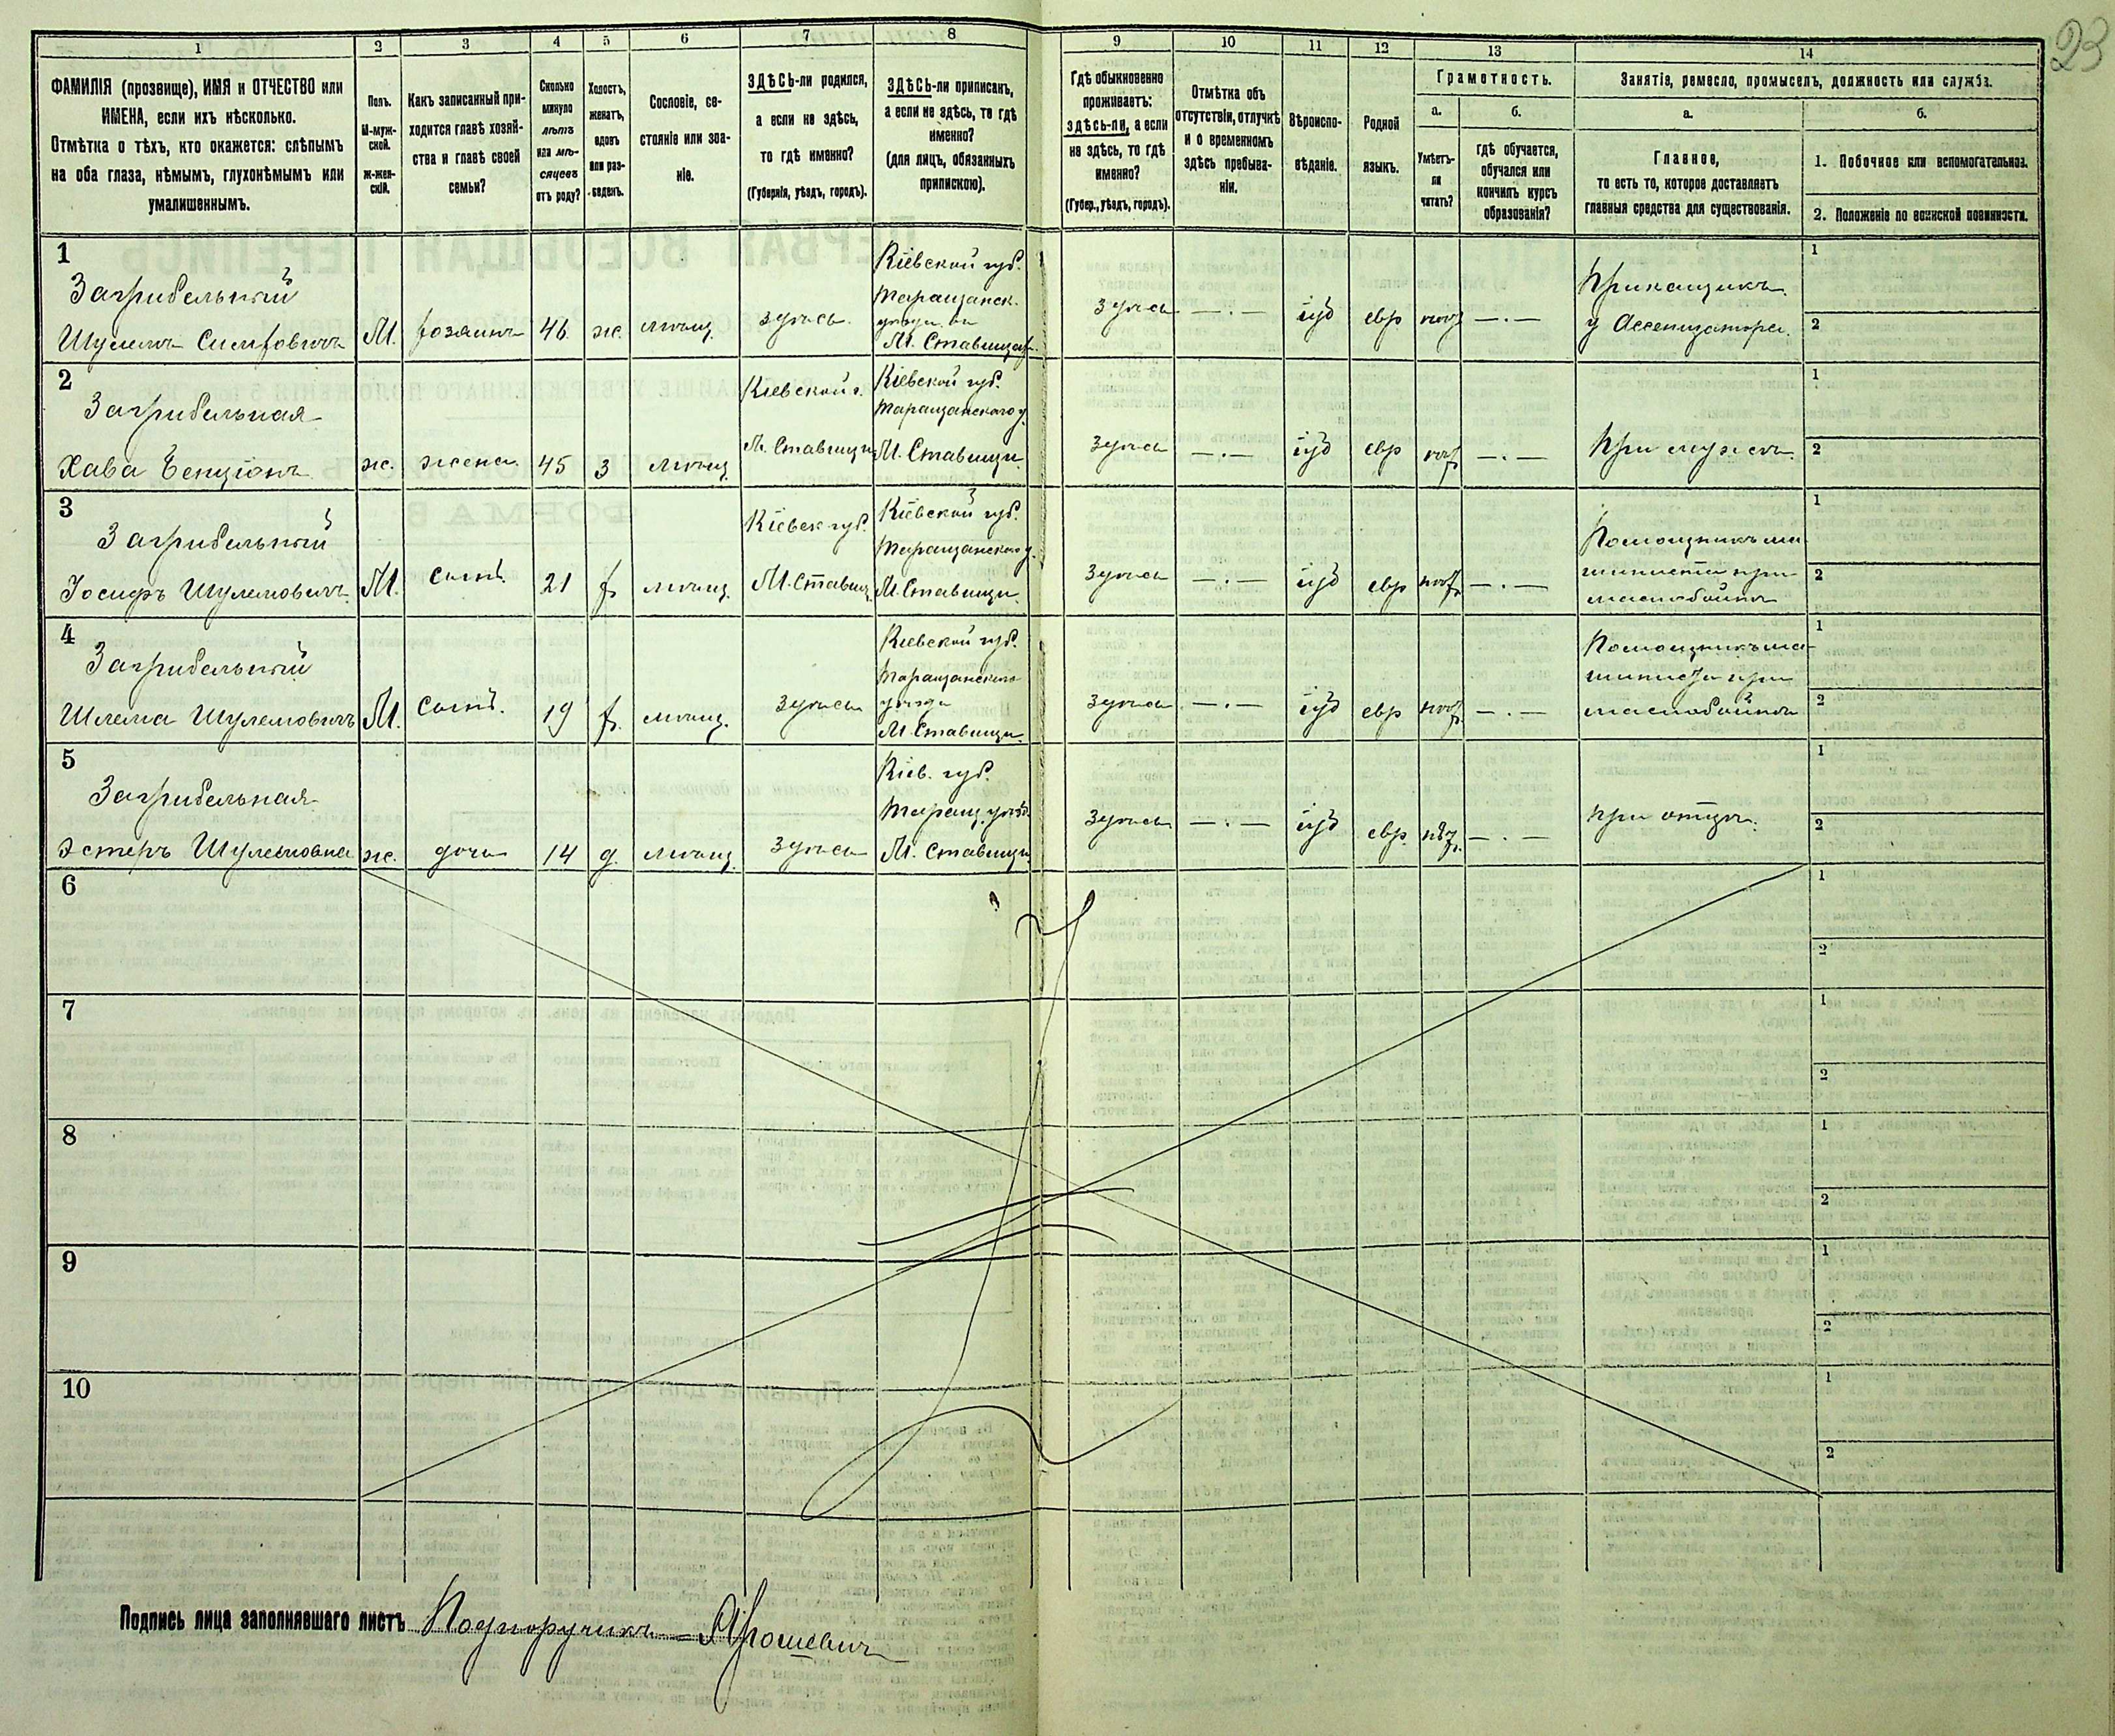 23
1 2 3 4 5 6 7 8 9 10 11 12 13 14
ФАМИЛІЯ (прозвище), ИМЯ и ОТЧЕСТВО или
ИМЕНА, если ихъ нѣсколько.
Отмѣтка о тѣхъ, кто окажется: слѣпымъ
на оба глаза, нѣмымъ, глухонѣмымъ или
умалишеннымъ.
Полъ.
М-муж-
ской.
Ж-жен-
скій.
Какъ записанный при-
ходится главѣ хозяй-
ства и главѣ своей
семьи?
Сколько
минуло
лѣтъ
или мѣ-
сяцевъ
отъ роду?
Холостъ,
женатъ,
вдовъ
или раз-
веденъ.
Сословіе, со-
стояніе или зва-
ніе.
ЗДѢСЬ-ли родился,
а если не здѣсь,
то гдѣ именно?
(Губернія, уѣздъ, городъ).
ЗДѢСЬ-ли приписанъ,
а если не здѣсь, то гдѣ
именно?
(для лицъ, обязанныхъ
припискою).
Гдѣ обыкновенно
проживаетъ:
здѣсь-ли, а если
не здѣсь, то гдѣ
именно?
(Губер., уѣздъ, городъ).
Отмѣтка объ
отсутствіи, отлучкѣ
и о временномъ
здѣсь пребыва-
ніи.
Вѣроиспо-
вѣданіе.
Родной
языкъ.
Грамотность.
а.
Умѣетъ-
ли
читать?
б.
гдѣ обучается,
обучался или
кончилъ курсъ
образованія?
Занятіе, ремесло, промыселъ, должность или служба.
а.
Главное,
то есть то, которое доставляетъ
главныя средства для существованія.
б.
1. Побочное или вспомогательное.
2. Положеніе по воинской повинности.
1
Загрибельный
Шулемъ
М. хозяинъ 46 ж. мѣщ. здѣсь.
Кіевской губ.
Таращанск.
уѣзда въ
М. Ставищахъ.
здѣсь — . — іуд евр — . —
Прикащикъ
у Ассенизатора.
1
2
2
Загрибельная
Хава Бенціонъ
ж. жена 45 з мѣщ.
Кіевской г.
М. Ставищи
Кіевской губ.
Таращанского у.
М. Ставищи.
здѣсь — . — іуд евр — . —
При мужѣ.
1
2
3
Загрибельный
Іосифъ Шулемовичъ
М. сынъ. 21 х мѣщ.
Кіевск губ.
М. Ставищ.
Кіевской губ.
Таращанского у.
М. Ставищи.
здѣсь — . — іуд евр — . —
Помощникъ ма-
шиниста при
маслобойнѣ
1
2
4
Загрибельный
Шлема Шулемовичъ
М. сынъ. 19 х. мѣщ. здѣсь
Кіевской губ.
Таращанского
уѣзда
М. Ставищи.
здѣсь — . — іуд евр — . —
Помощникъ ма-
шиниста при
маслобойнѣ
1
2
5
Загрибельная
Эстеръ Шулемовна
ж. дочь 14 д. мѣщ. здѣсь
Кіев. губ.
Таращ. уѣзд.
М. Ставищи
здѣсь — . — іуд евр. — . —
при отцѣ.
1
2
6
1
2
7
1
2
8
1
2
9
1
2
10
1
2
Подпись лица заполнявшаго листъ Подпоручикъ — Ярошевичъ